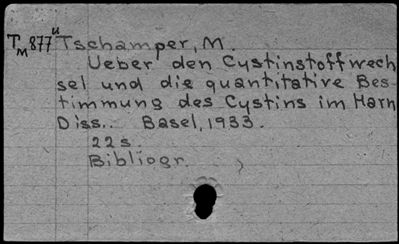 TM877u Tschamper, M.
Ueber den Cystinstoffwech
sel und die quantitative Bes-
timmung des Cystins im Harn
Diss.. Basel, 1933.
22 s.
Bibliogr.